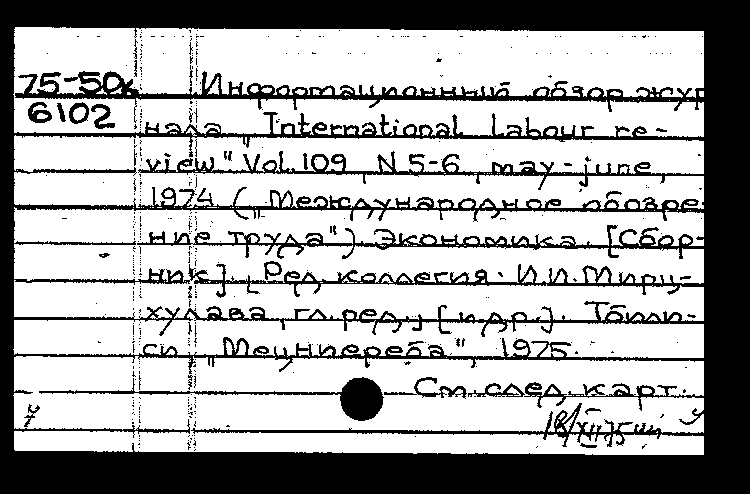 75-50к Информационный обзор жур
6102 нала „International Labour re-
view". Vol. 109, N 5-6, may-june,
1974 („Международное обозре-
ние труда"). Экономика. [Сбор-
ник]. [Ред. коллегия: И.И. Мирц-
хулава, гл. ред., [и др.]. Тбили-
си, „Мецниереба", 1975.
См. след. карт.
18/XII 75